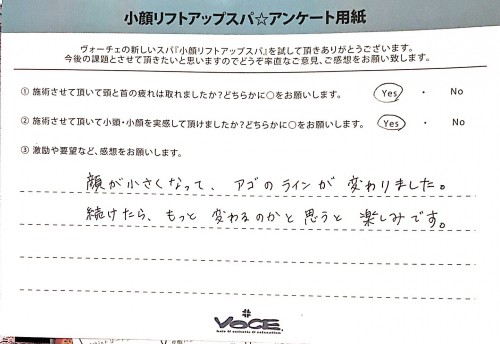 小顔リフトアップスパ☆アンケート用紙
ヴォーチェの新しいスパ『小顔リフトアップスパ』を試して頂きありがとうございます。
今後の課題とさせて頂きたいと思いますのでどうぞ率直なご意見、ご感想をお願い致します。
① 施術させて頂いて頸と首の疲れは取れましたか？どちらかに○をお願いします。 Yes ・ No
② 施術させて頂いて小頭・小顔を実感して頂けましたか？どちらかに○をお願いします。 Yes ・ No
③ 激励や要望など、感想をお願いします。
顔が小さくなって、アゴのラインが変わりました。
続けたら、もっと変わるのかと思うと楽しみです。
VOCE